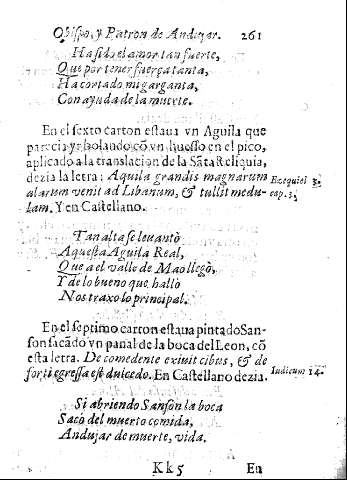 Obispo, y Patron de Andujar. 261
Ha sido el amor tan fuerte,
Que por tener fuerça tanta,
Ha cortado mi garganta,
Con ayuda de la muerte.
En el sexto carton estaua vn Aguila que
parecia yr bolando cõ vn huesso en el pico,
aplicado a la translacion de la Sãta Reliquia,
dezia la letra: Aquila grandis magnarum
alarum venit ad Libanum, & tullit medu-
lam. Y en Castellano.
Ezequiel
cap. 3.
Tan alta se leuantò
Aquesta Aguila Real,
Que a el valle de Mao llegò,
Y de lo bueno que hallò
Nos traxo lo principal.
En el septimo carton estaua pintado San-
son sacãdo vn panal de la boca del Leon, cõ
esta letra. De comedente exiuit cibus, & de
forti egressa est dulcedo. En Castellano dezia.
Iudicum 14.
Si abriendo Sansòn la boca
Sacò del muerto comida,
Andujar de muerte, vida.
Kk5 En